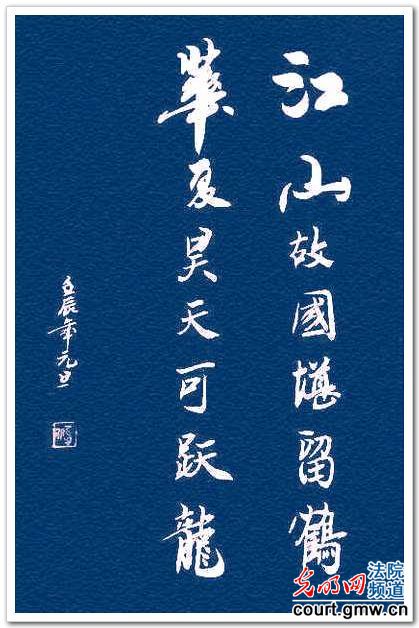 江山故國堪留鶴
華夏昊天可跃龍
壬辰年元旦
光明网
法院
频道
court.gmw.cn